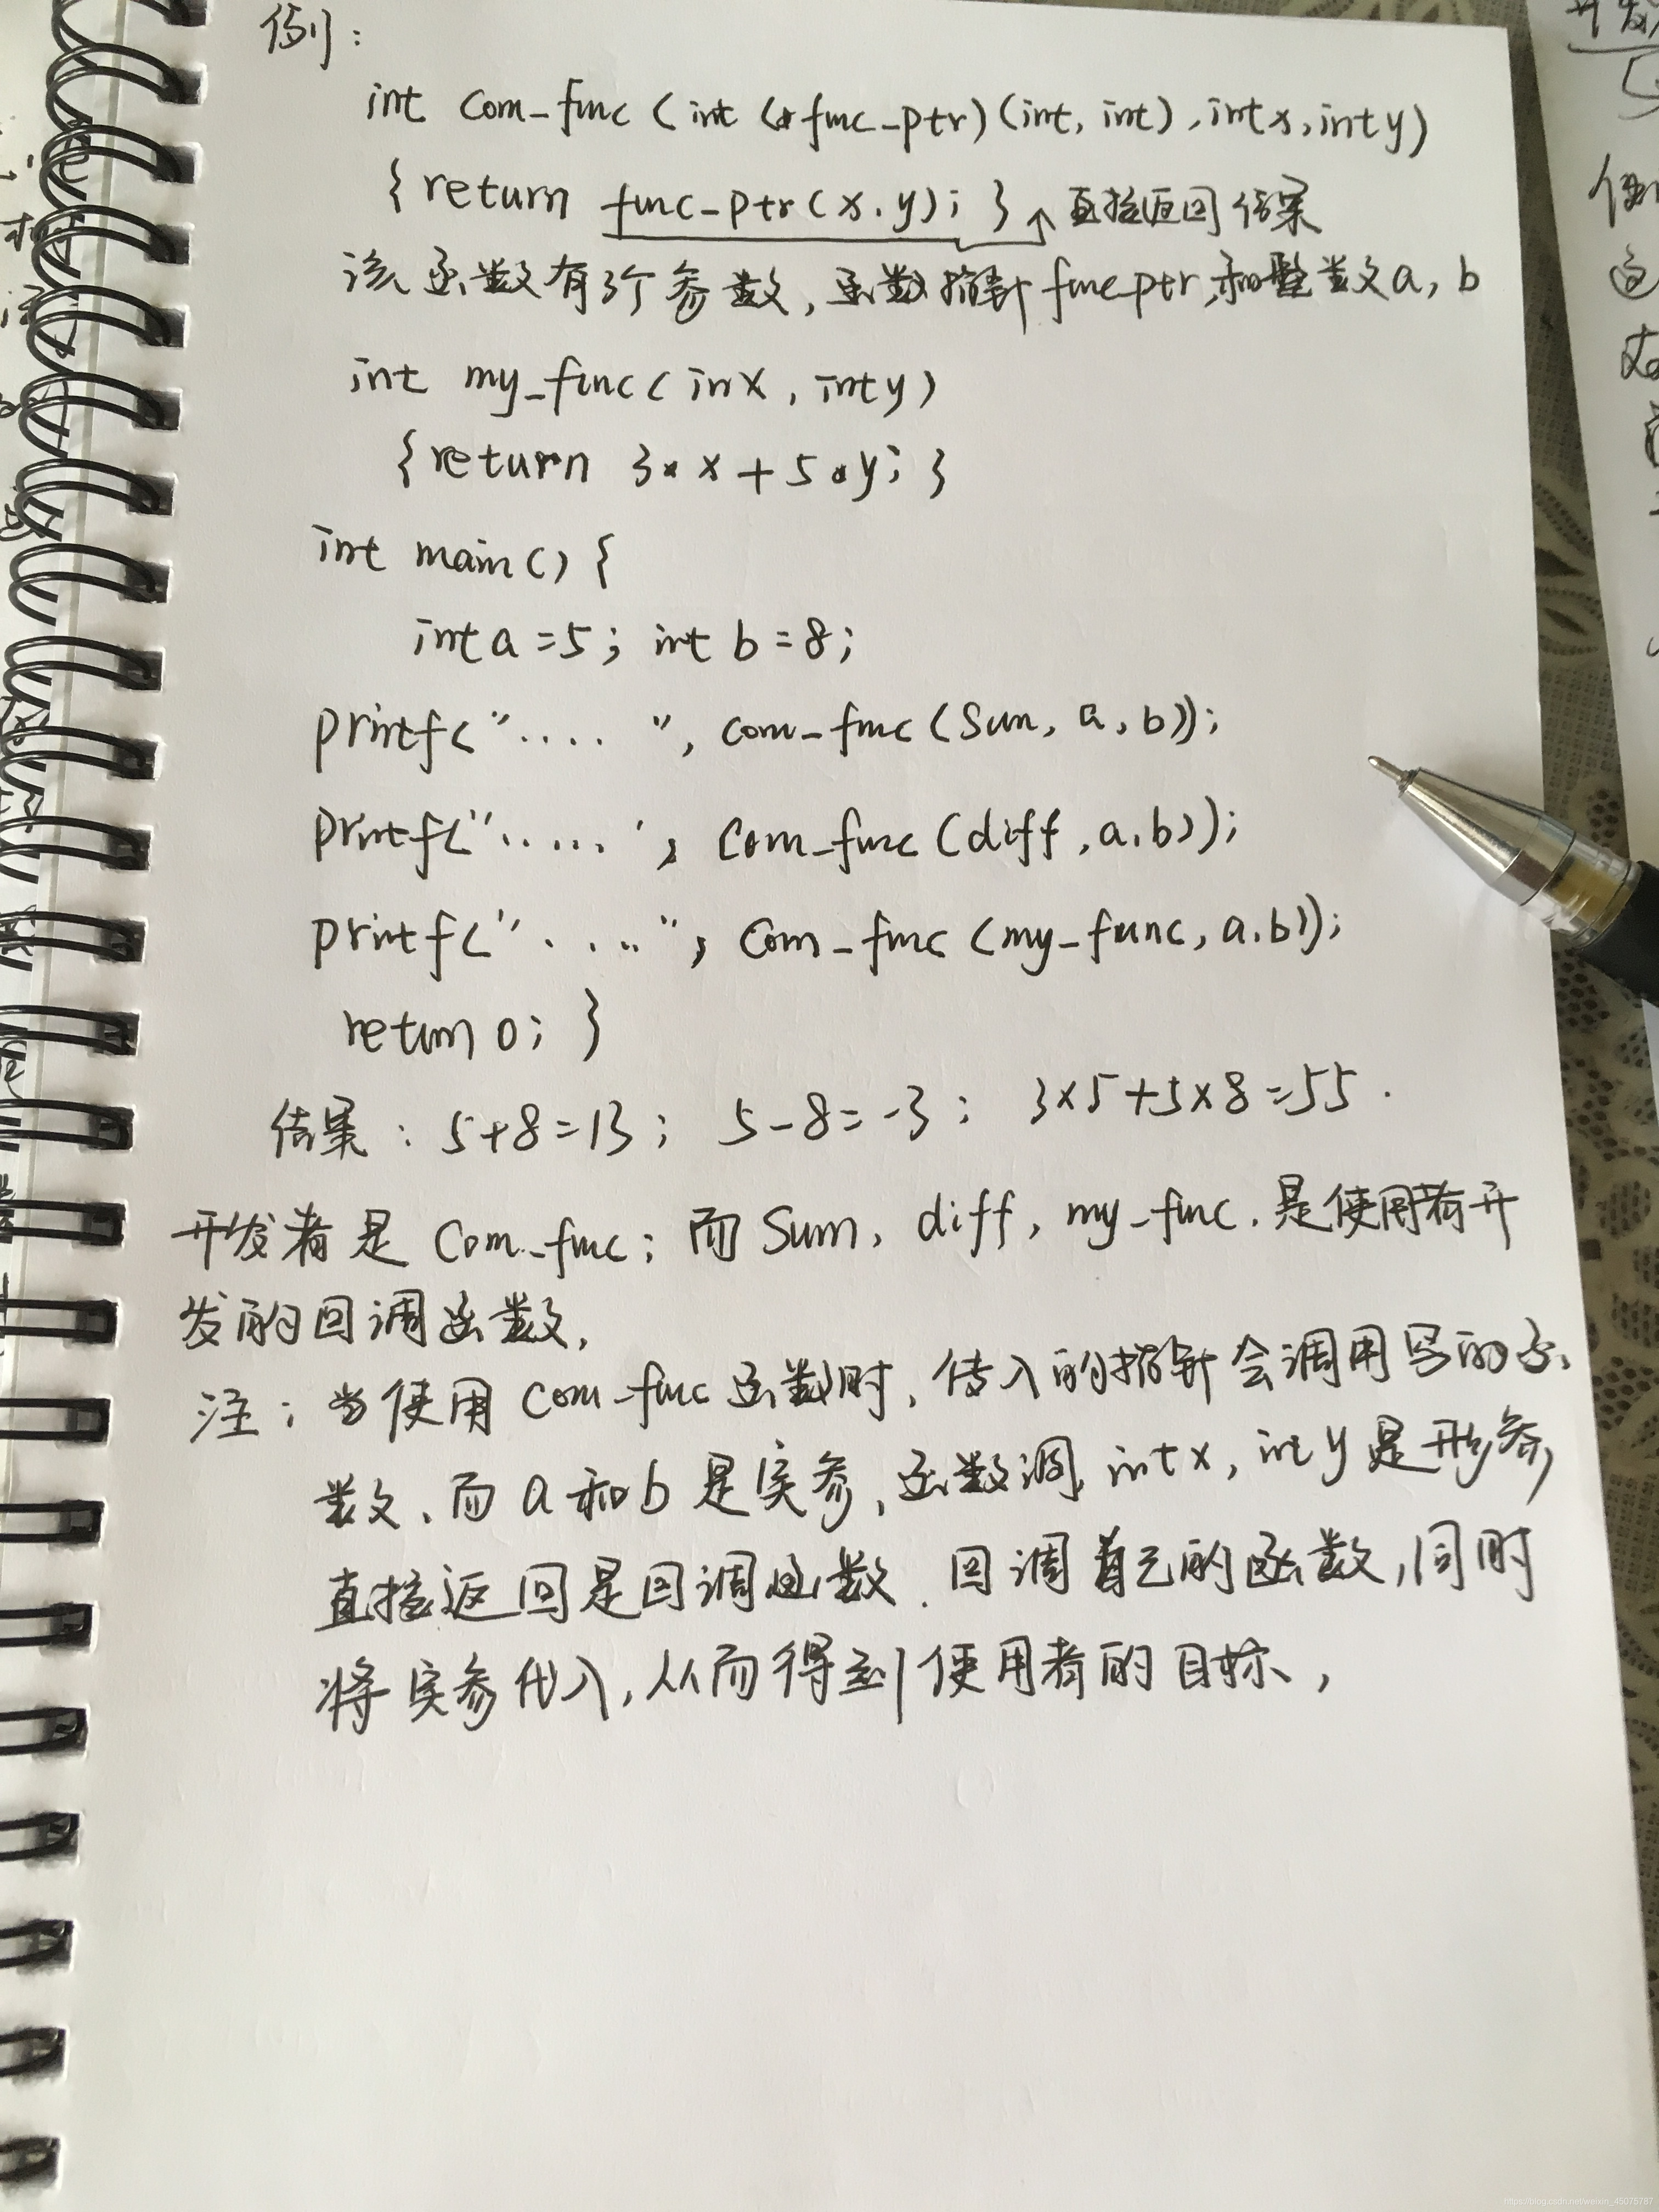 例：
int com_func (int (*func_ptr)(int, int), int x, int y)
{ return func_ptr(x, y); } 直接返回结果
该函数有3个参数, 函数指针 func ptr, 和整数 a, b
int my_func ( in x , int y )
{ return 3* x + 5 * y; }
int main() {
int a = 5; int b = 8;
printf(".... ", com_func (Sum, a, b));
printf("..... ', com_func (diff, a, b));
printf(" . ....", com_func (my_func, a, b));
return 0; }
结果 : 5+8=13; 5-8=-3; 3×5+5×8=55.
开发者是 com_func; 而 Sum, diff, my_func. 是使用者开
发的回调函数,
注: 当使用 com_func 函数时, 传入的指针会调用写的函
数, 而 a 和 b 是实参, 函数 int x, int y 是形参,
直接返回是回调函数. 回调自己的函数, 同时
将实参代入, 从而得到使用者的目标,
https://blog.csdn.net/weixin_45075787